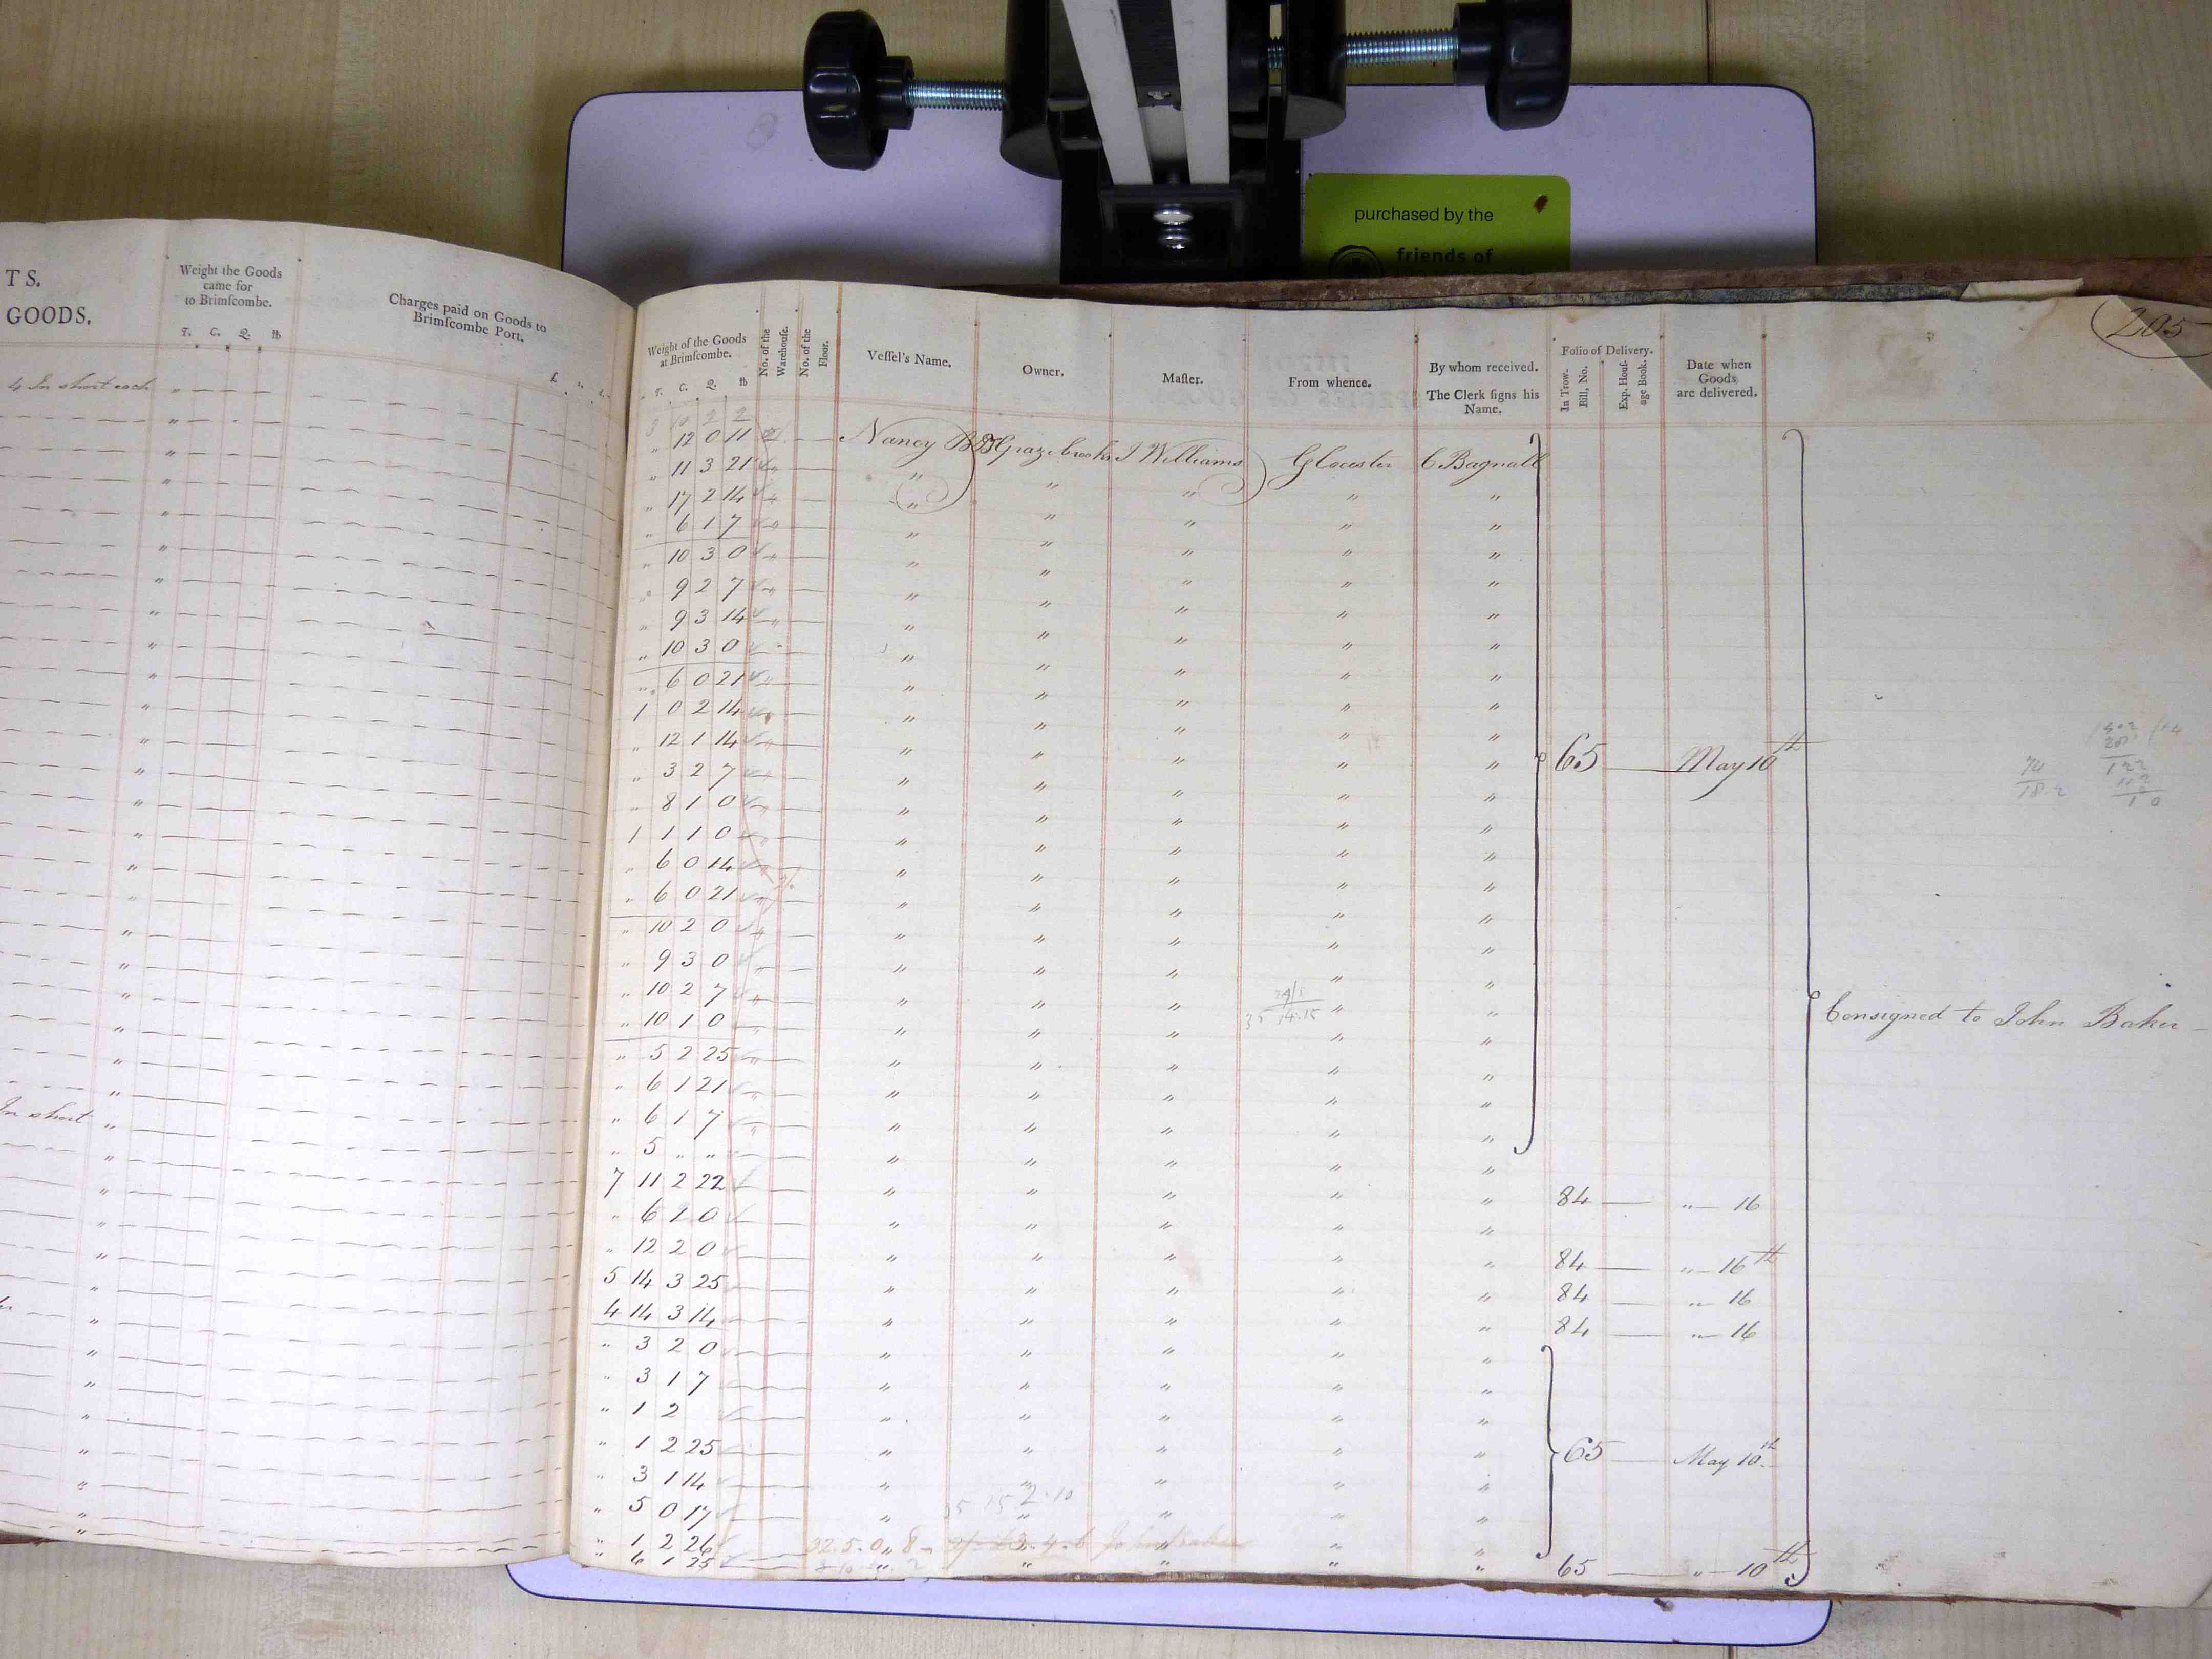 purchased by the
friends of
TS.
GOODS.
Weight the Goods
came for
to Brimſcombe.
T. C. Q. lb
Charges paid on Goods to
Brimſcombe Port.
4 In short each
In short
205
Weight of the Goods
at Brimſcombe.
T. C. Q. lb
No. of the
Warehouſe.
No. of the
Floor.
Veſſel's Name.
Owner.
Maſter.
From whence.
By whom received.
The Clerk ſigns his
Name.
Folio of Delivery.
In Trow-
Bill, No.
Exp. Houſ-
age Book.
Date when
Goods
are delivered.
3 10 2 2
" 12 0 11 Nancy B Grazebrook J Williams Glocester C Bagnall
" 11 3 21 " " " " "
" 17 2 14 " " " " "
" 6 1 7 " " " " "
" 10 3 0 " " " " "
" 9 2 7 " " " " "
" 9 3 14 " " " " "
" 10 3 0 " " " " "
" 6 0 21 " " " " "
1 0 2 14 " " " " "
" 12 1 14 " " " " " 65 May 10th
" 3 2 7 " " " " "
" 8 1 0 " " " " "
1 1 1 0 " " " " "
" 6 0 14 " " " " "
" 6 0 21 " " " " "
" 10 2 0 " " " " "
" 9 3 0 " " " " "
" 10 2 7 " " " " "
" 10 1 0 " " " " " Consigned to John Baker
" 5 2 25 " " " " "
" 6 1 21 " " " " "
" 6 1 7 " " " " "
" 5 " " " " " " "
7 11 2 22 " " " " " 84 " 16
" 6 2 0 " " " " "
" 12 2 0 " " " " " 84 " 16th
5 14 3 25 " " " " " 84 " 16
4 14 3 14 " " " " " 84 " 16
" 3 2 0 " " " " "
" 3 1 7 " " " " "
" 1 2 " " " " "
" 1 2 25 " " " " " 65 May 10th
" 3 1 14 " " " " "
" 5 0 17 " " " " "
" 1 2 26 " " " " "
" 6 1 25 " " " " " 65 " 10th